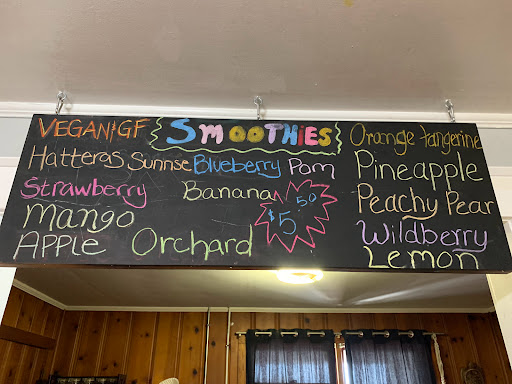 VEGAN!GF SMOOTHIES Orange tangerine
Hatteras Sunrise Blueberry Pom Pineapple
Strawberry Banana $5.50 Peachy Pear
Mango Wildberry
APPLE Orchard Lemon